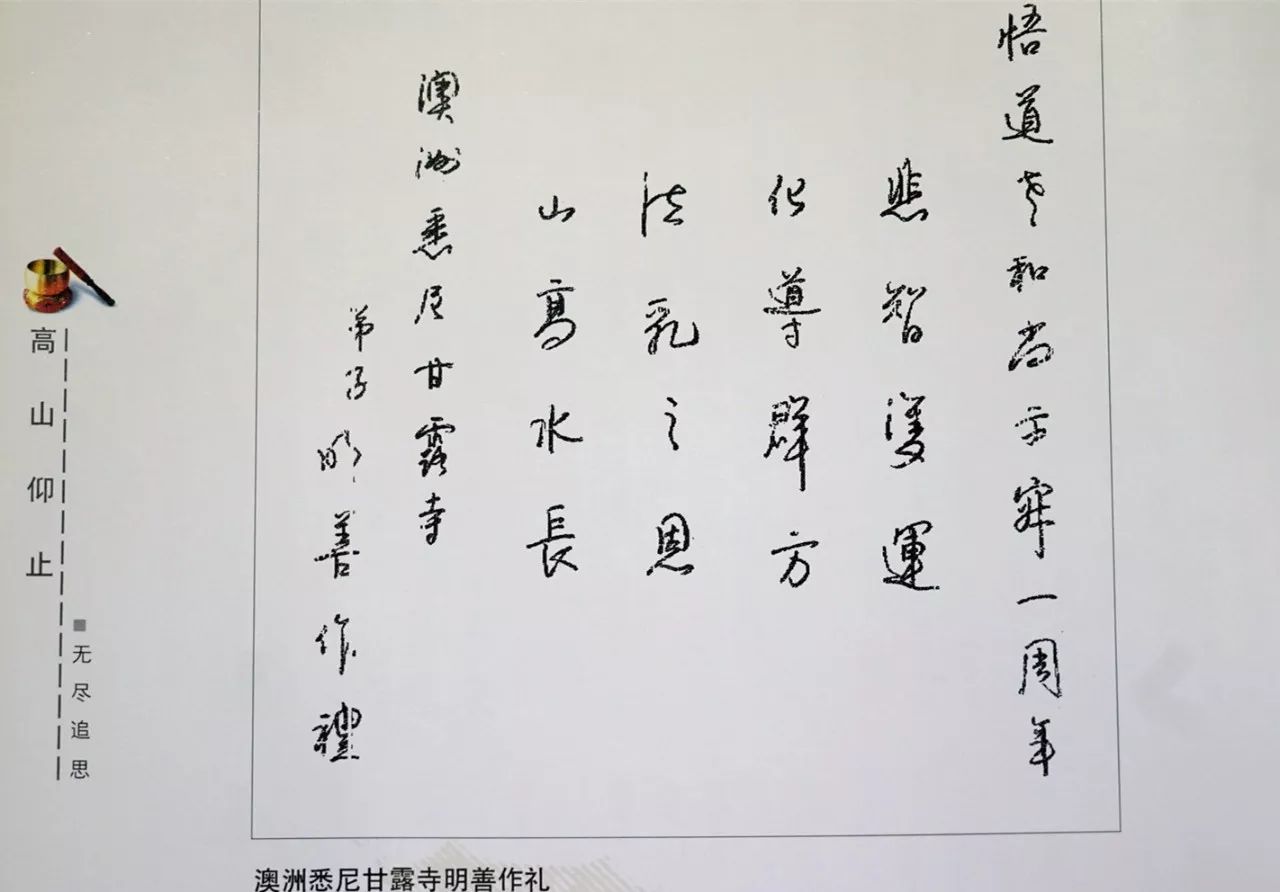 悟道老和尚示寂一周年
悲智雙運
化導群方
法乳之恩
山高水長
澳洲悉尼甘露寺
弟子明善作禮
高山仰止
■无尽追思
澳洲悉尼甘露寺明善作礼